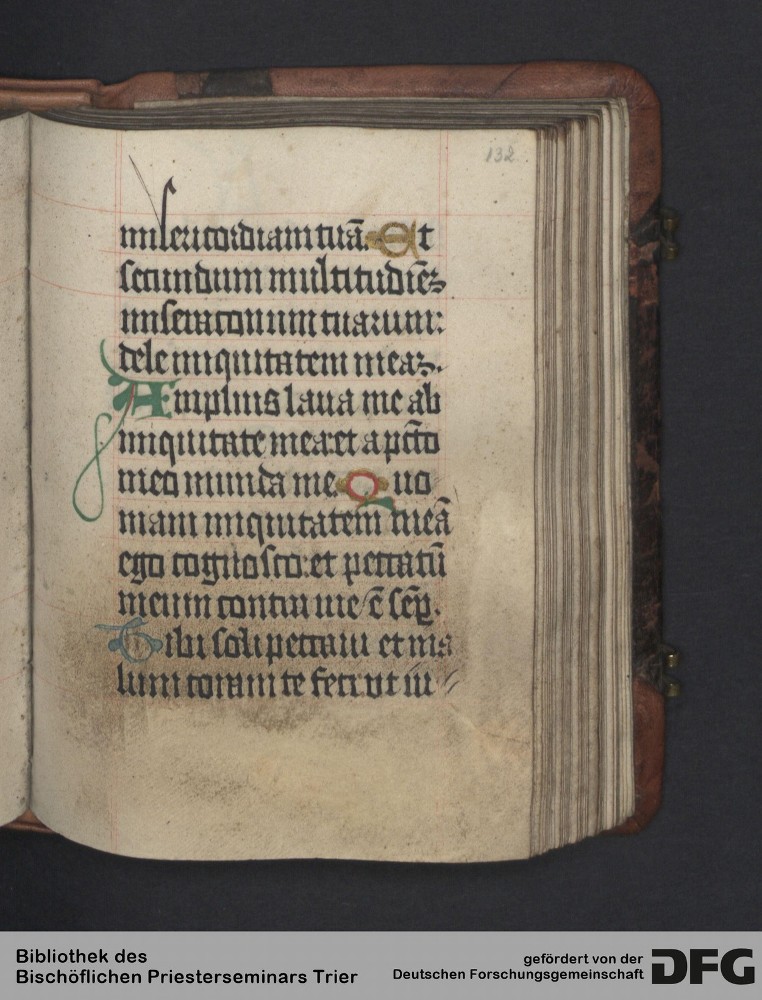 132
misericordiam tuā. Et
secundum multitudiēꝫ
miseracionum tuarum:
dele iniquitatem meaꝫ.
Amplius laua me ab
iniquitate mea: et a pctō
meo munda me. Quo
niam iniquitatem meā
ego cognosco: et peccatū
meum contra me ē semꝑ.
Tibi soli peccaui et ma
lum coram te feci vt iu
Bibliothek des
Bischöflichen Priesterseminars Trier
gefördert von der
Deutschen Forschungsgemeinschaft
DFG